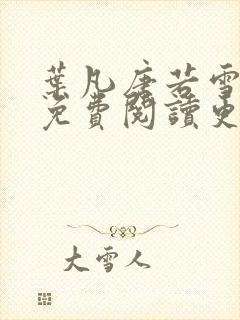 葉凡唐若雪
免費閱讀更
大雪人